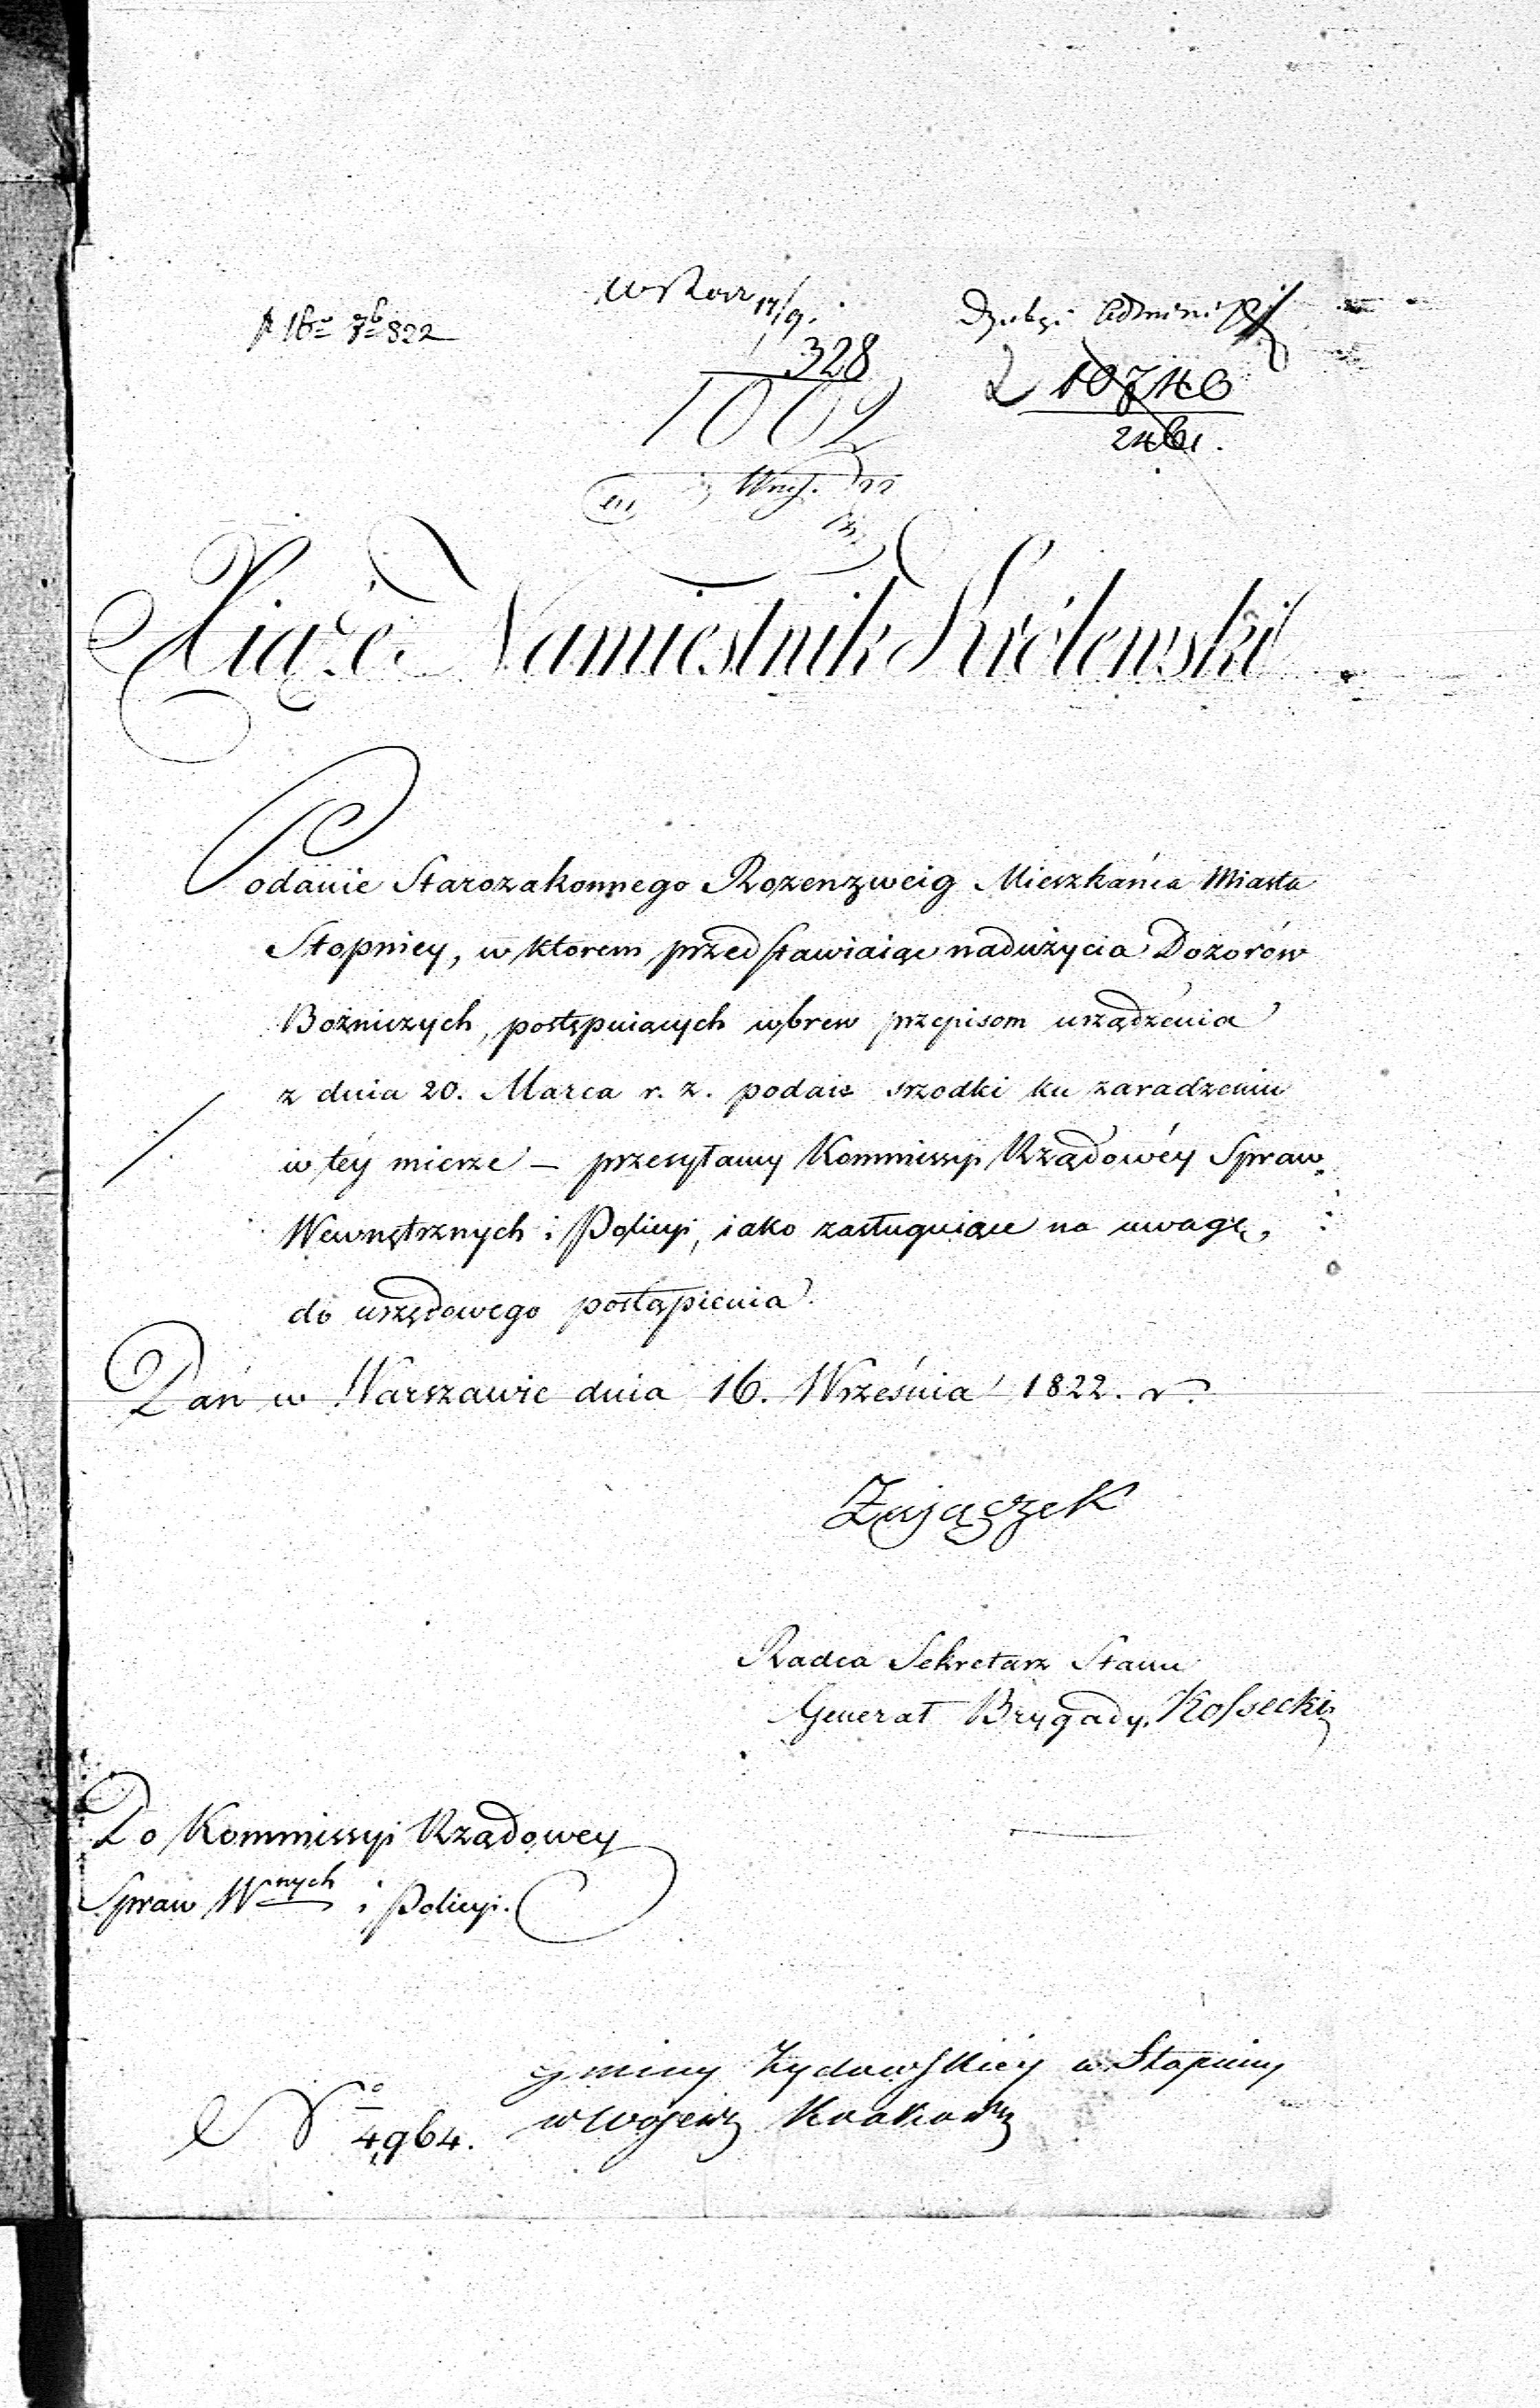 328
1002
10740
2461.
Xiąże Namiestnik Królewski
Podanie Starozakonnego Rozenzweig Mieszkańca Miasta
Stopnicy, w ktorem przedstawiaiąc nadużycia Dozorów
Bożniczych, postępuiących wbrew przepisom urządzenia
z dnia 20. Marca r. z. podaie srzodki ku zaradzeniu
w téy mierze – przesyłamy Kommissyi Rządowéy Spraw
Wewnętrznych i Policyi, iako zasługuiące na uwagę,
do urzędowego postąpienia.
Dań w Warszawie dnia 16. Września 1822. r.
Zajączek
Radca Sekretarz Stanu
Generał Brygady, Kossecki
Do Kommissyi Rządowey
Spraw Wnych i Policyi.
Gminy Żydowskiéy w Stopnicy
No 4,964.
w Wojew Krakows